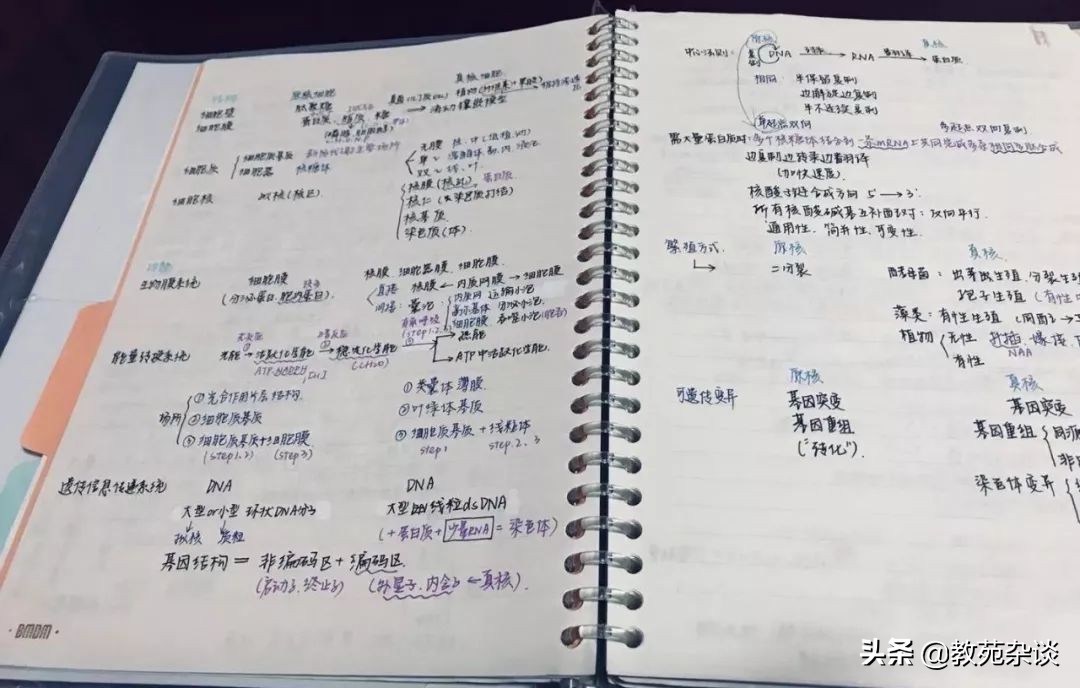 结构 原核细胞 真核细胞
细胞壁 肽聚糖 真菌(几丁质etc) 植物(纤维素+果胶)
细胞膜 蛋白质、脂质、糖 → 流动镶嵌模型
(磷脂、胆固醇)
细胞质 细胞质基质 新陈代谢主要场所
细胞器 核糖体
无膜 核、中(低植、动)
单 溶、高、液、内
双 线、叶
细胞核 拟核(核区)
核膜(核孔) 蛋白质
核仁
核基质
染色质(体)
功能
生物膜系统 细胞膜 核膜、细胞器膜、细胞膜
(分泌蛋白、胞内蛋白)
直接 核膜 ← 内质网膜 → 细胞膜
间接:囊泡
内质网 运输小泡
高尔基体 分泌小泡
细胞膜 吞噬小泡(胞吞)
能量转换系统 光能 → 活跃化学能 → 稳定化学能 → 热能
ATP NADPH [H] (CH2O)
→ ATP中活跃化学能
场所 ①光合作用片层结构 ①类囊体薄膜
②细胞质基质 ②叶绿体基质
③细胞质基质+细胞膜 ③细胞质基质+线粒体
(step1.2) (step3) step1 step2.3
遗传信息传递系统 DNA DNA
大型or小型环状DNA分子 大型 线粒dsDNA
拟核 质粒 (+蛋白质+少量RNA=染色体)
基因结构 = 非编码区 + 编码区
(启动子、终止子) (外显子、内含子←真核)
·BMDM·
中心法则: 原核 真核
复制 DNA 转录→ RNA 翻译→ 蛋白质
相同 半保留复制
边解旋边复制
半不连续复制
单起点双向 多起点双向复制
需大量蛋白质时:多个核糖体结合到一条mRNA上共同完成多条相同多肽合成
边复制边转录边翻译
(加快速度)
核酸 合成方向 5'→3'
所有核酸碱基互补配对:反向平行
通用性、简并性、可变性
繁殖方式 原核 真核
二分裂
酵母菌:出芽生殖、分裂生殖
孢子生殖(有性
藻类:有性生殖
植物 无性 扦插、嫁接
NAA
有性
可遗传变异 原核 真核
基因突变 基因突变
基因重组 基因重组
("转化")
染色体变异
头条 @教苑杂谈